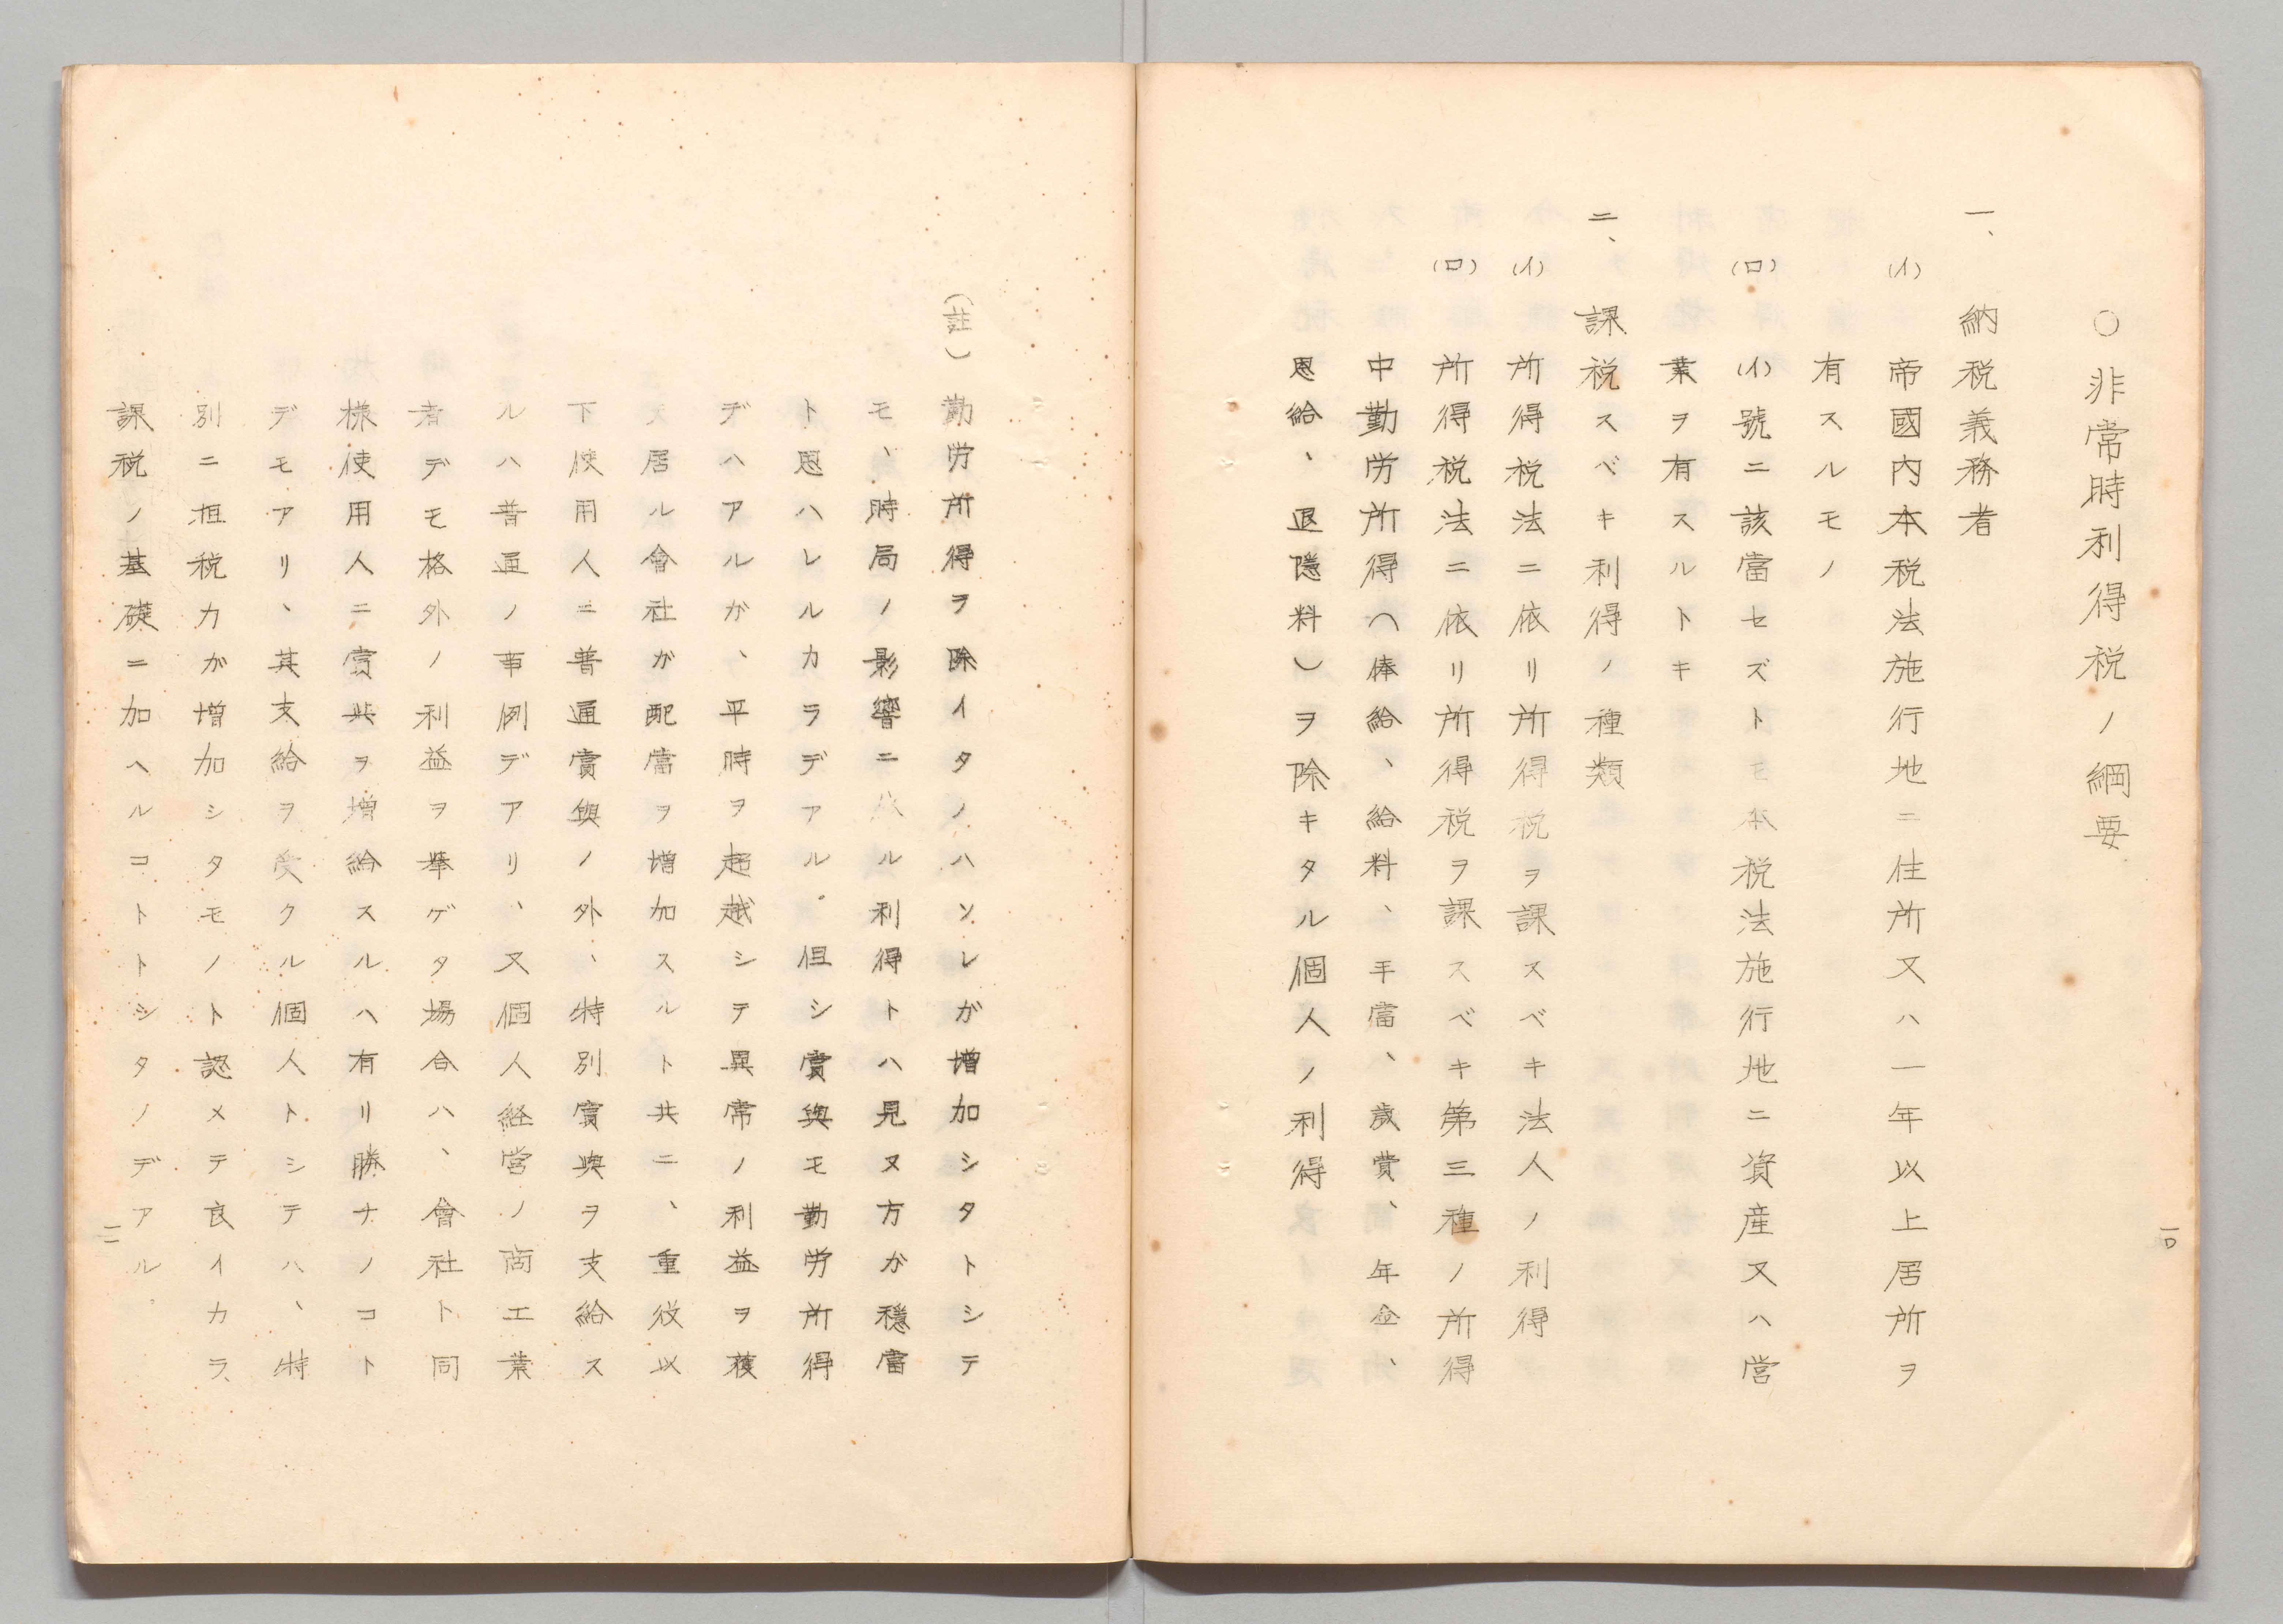 ○非常時利得税ノ綱要
一、納税義務者
(イ)帝國内本税法施行地ニ住所又ハ一年以上居所ヲ
有スルモノ
(ロ)(イ)號ニ該當セズトモ本税法施行地ニ資産又ハ営
業ヲ有スルトキ
二、課税スベキ利得ノ種類
(イ)所得税法ニ依リ所得税ヲ課スベキ法人ノ利得
(ロ)所得税法ニ依リ所得税ヲ課スベキ第三種ノ所得
中勤労所得(俸給、給料、手當、歳費、年金、
恩給、退隠料)ヲ除キタル個人ノ利得
一〇
(註)勤労所得ヲ除イタノハソレガ増加シタトシテ
モ、時局ノ影響ニ八ル利得トハ見ヌ方ガ穏當
ト思ハレルカラデアル。但シ賞與モ勤労所得
デハアルガ、平時ヲ超越シテ異常ノ利益ヲ獲
テ居ル會社ガ配當ヲ増加スルト共ニ、重役以
下使用人ニ普通賞與ノ外、特別賞與ヲ支給ス
ルハ普通ノ事例デアリ、又個人経営ノ商工業
者デモ格外ノ利益ヲ挙ゲタ場合ハ、會社ト同
様使用人ニ賞與ヲ増給スルハ有リ勝ナノコト
デモアリ、其支給ヲ受クル個人トシテハ、特
別ニ担税力ガ増加シタモノト認メテ良イカラ
課税ノ基礎ニ加ヘルコトトシタノデアル
一一